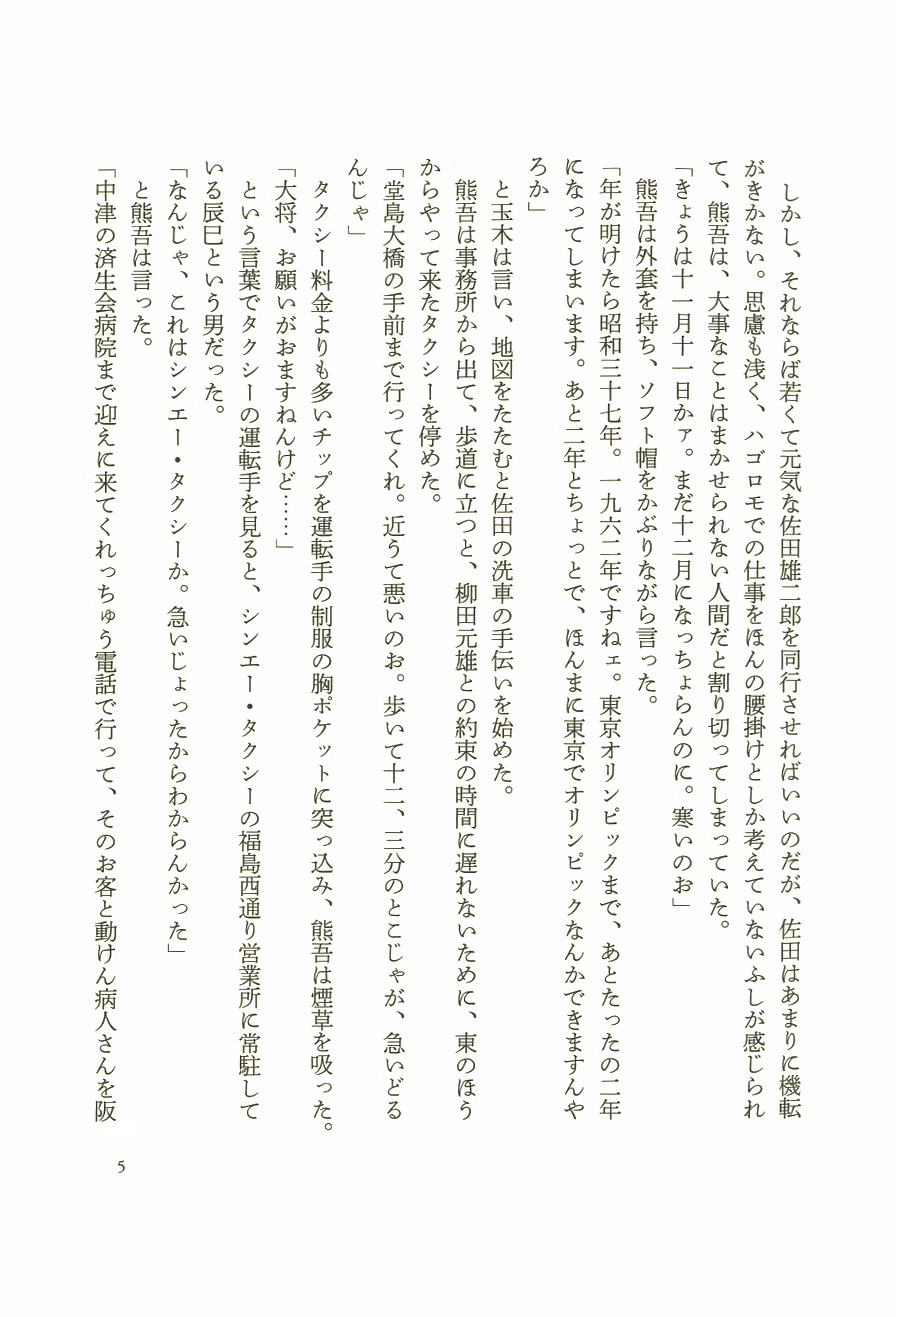 しかし、それならば若くて元気な佐田雄二郎を同行させればいいのだが、佐田はあまりに機転
がきかない。思慮も浅く、ハゴロモでの仕事をほんの腰掛けとしか考えていないふしが感じられ
て、熊吾は、大事なことはまかせられない人間だと割り切ってしまっていた。
「きょうは十一月十一日かァ。まだ十二月になっちょらんのに。寒いのお」
熊吾は外套を持ち、ソフト帽をかぶりながら言った。
「年が明けたら昭和三十七年。一九六二年ですねェ。東京オリンピックまで、あとたったの二年
になってしまいます。あと二年とちょっとで、ほんまに東京でオリンピックなんかできますんや
ろか」
と玉木は言い、地図をたたむと佐田の洗車の手伝いを始めた。
熊吾は事務所から出て、歩道に立つと、柳田元雄との約束の時間に遅れないために、東のほう
からやって来たタクシーを停めた。
「堂島大橋の手前まで行ってくれ。近うて悪いのお。歩いて十二、三分のとこじゃが、急いどる
んじゃ」
タクシー料金よりも多いチップを運転手の制服の胸ポケットに突っ込み、熊吾は煙草を吸った。
「大将、お願いがおますねんけど……」
という言葉でタクシーの運転手を見ると、シンエー・タクシーの福島西通り営業所に常駐して
いる辰巳という男だった。
「なんじゃ、これはシンエー・タクシーか。急いじょったからわからんかった」
と熊吾は言った。
「中津の済生会病院まで迎えに来てくれっちゅう電話で行って、そのお客と動けん病人さんを阪
5